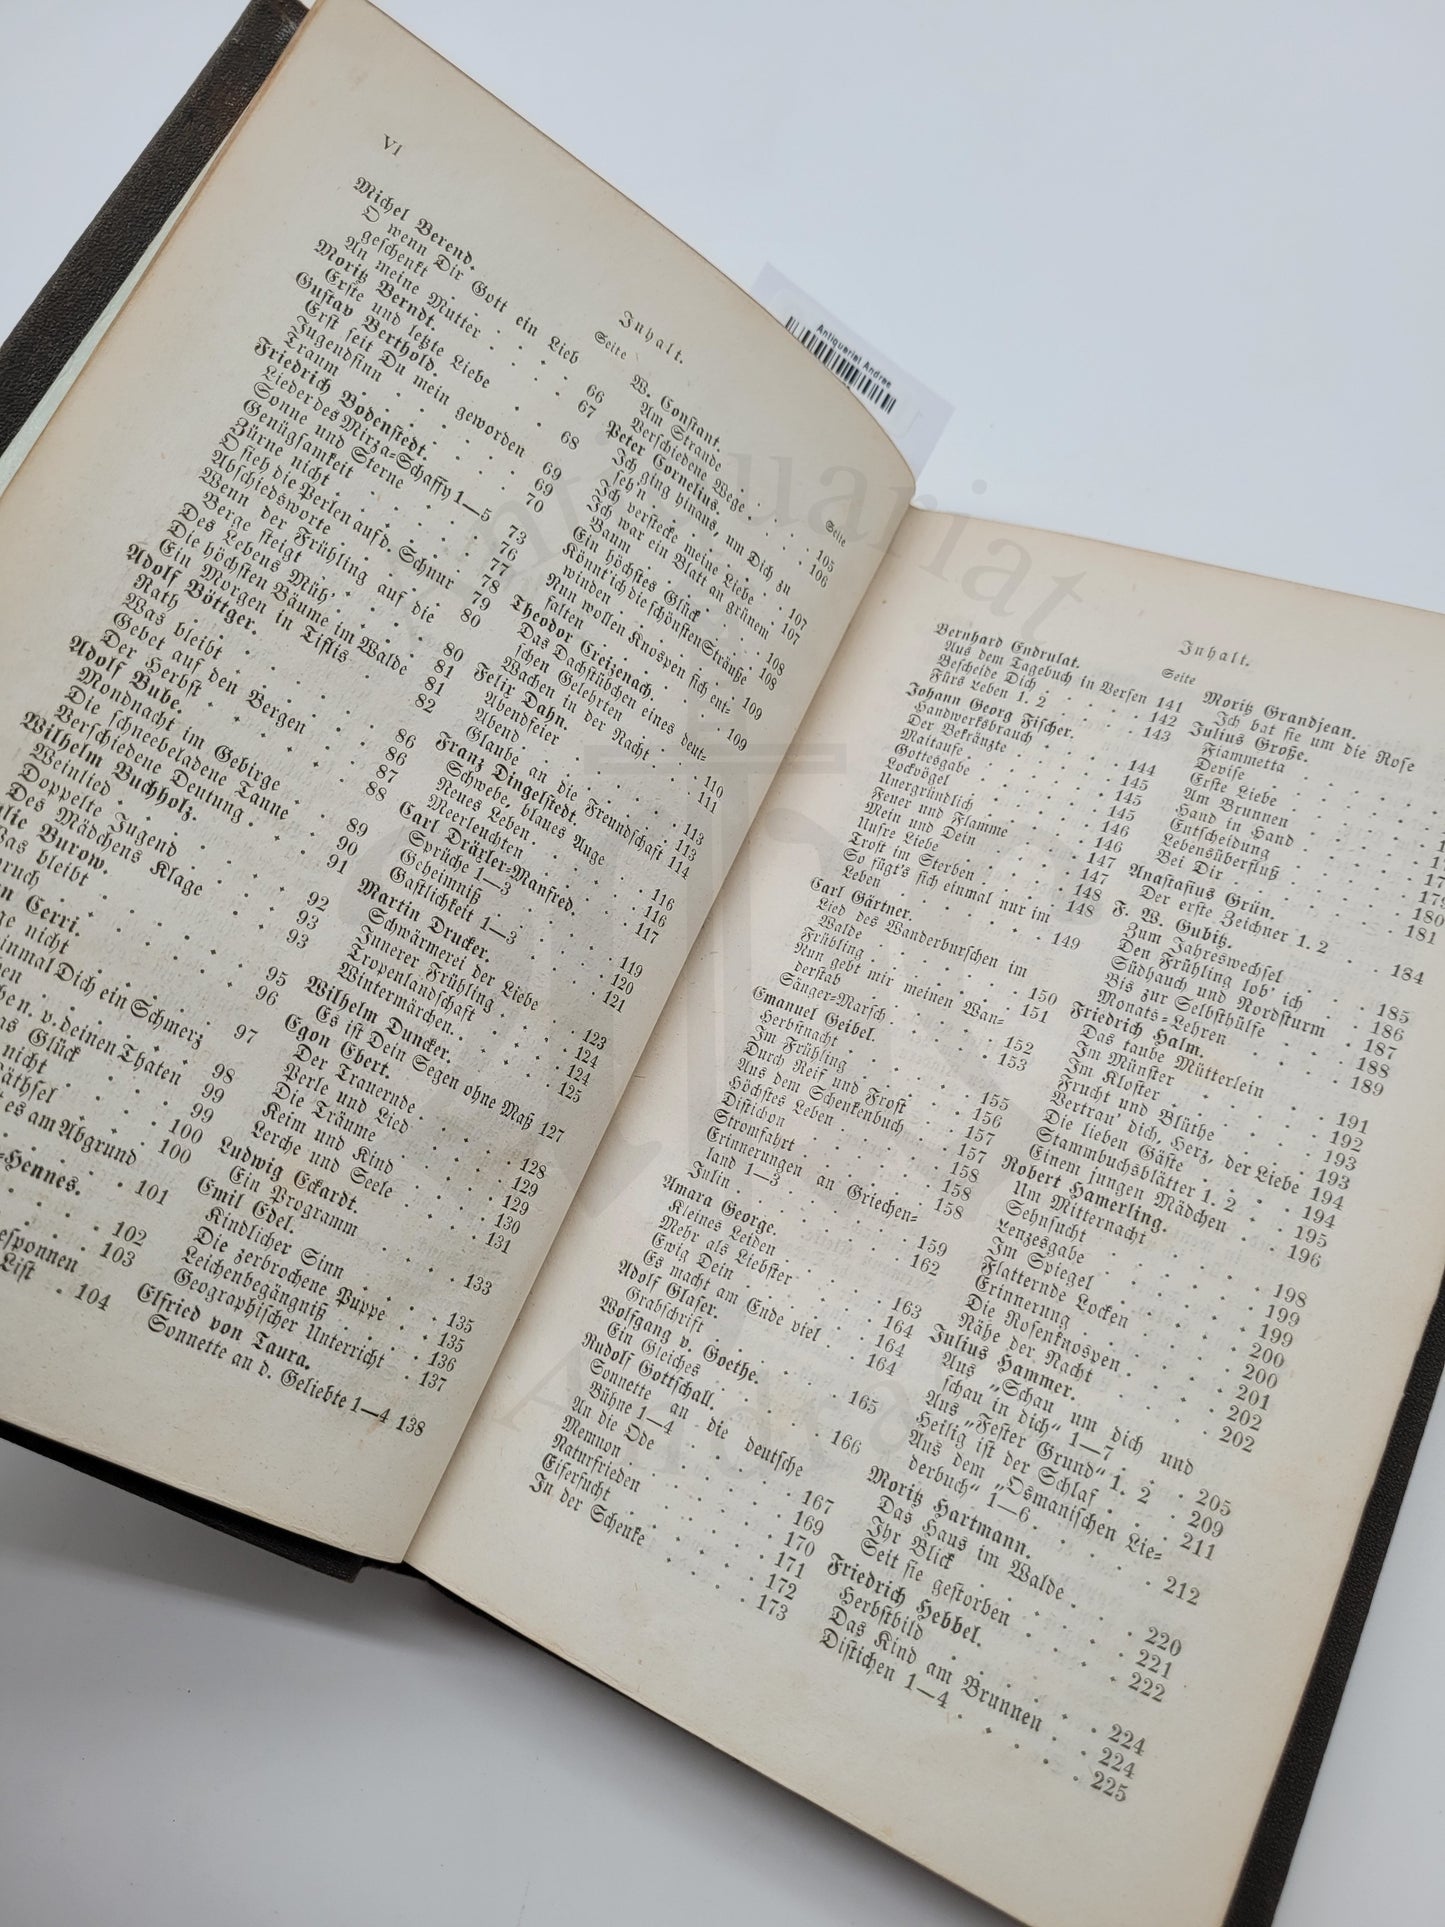 VI
Inhalt.
Seite
Michel Berend.
O wenn Dir Gott ein Lieb
geschenkt . . . . . 66
An meine Mutter . . . . 67
Moritz Berndt.
Erste und letzte Liebe . . 68
Gustav Berthold.
Erst seit Du mein geworden 69
Jugendsinn . . . . . 69
Traum . . . . . . 70
Friedrich Bodenstedt.
Lieder des Mirza-Schaffy 1—5 73
Sonne und Sterne . . . 76
Genügsamkeit . . . . 77
Zürne nicht . . . . . 78
O sieh die Perlen auf d. Schnur 79
Abschiedsworte . . . . 80
Wenn der Frühling auf die
Berge steigt . . . . 80
Des Lebens Müh' . . . 81
Die höchsten Bäume im Walde 81
Ein Morgen in Tiflis . . 82
Adolf Böttger.
Rath . . . . . . 86
Was bleibt . . . . . 86
Gebet auf den Bergen . . 87
Der Herbst . . . . . 88
Adolf Bube.
Mondnacht im Gebirge . . 89
Die schneebeladene Tanne . 90
Verschiedene Deutung . . 91
Wilhelm Buchholz.
Weinlied . . . . . 92
Doppelte Jugend . . . . 93
Des Mädchens Klage . . 93
Burow.
bleibt . . . . 95
. . . . 96
Cerri.
nicht . . . . 97
Dich ein Schmerz 98
. . . . 99
v. deinen Thaten 99
Glück . . . . 100
nicht . . . . 100
es am Abgrund 101
-Hennes.
. . . . 102
. . . . 103
List . . . . 104
Seite
W. Constant.
Am Strande . . . . . 105
Verschiedene Wege . . . 106
Peter Cornelius.
Ich ging hinaus, um Dich zu
seh'n . . . . . . 107
Ich verstecke meine Liebe . . 107
Ich war ein Blatt an grünem
Baum . . . . . . 108
Ein höchstes Glück . . . 108
Könnt' ich die schönsten Sträuße
winden . . . . . 109
Nun wollen Knospen sich ent-
falten . . . . . . 109
Theodor Creizenach.
Das Dachstübchen eines deut-
schen Gelehrten . . . 110
Wachen in der Nacht . . 111
Felix Dahn.
Abendfeier . . . . . 113
Abend . . . . . . 113
Glaube an die Freundschaft 114
Franz Dingelstedt.
Schwebe, blaues Auge . . 116
Neues Leben . . . . . 116
Meerleuchten . . . . . 117
Carl Dräxler-Manfred.
Sprüche 1—3 . . . . 119
Geheimniß . . . . . 120
Gastlichkeit 1—3 . . . 121
Martin Drucker.
Schwärmerei der Liebe . . 123
Innerer Frühling . . . 124
Tropenlandschaft . . . . 124
Wintermärchen. . . . . 125
Wilhelm Duncker.
Es ist Dein Segen ohne Maß 127
Egon Ebert.
Der Trauernde . . . . 128
Perle und Lied . . . . 129
Die Träume . . . . . 129
Keim und Kind . . . . 130
Lerche und Seele . . . . 131
Ludwig Eckardt.
Ein Programm . . . . 133
Emil Edel.
Kindlicher Sinn . . . . 135
Die zerbrochene Puppe . . 135
Leichenbegängniß . . . . 136
Geographischer Unterricht . . 137
Elfried von Taura.
Sonnette an d. Geliebte 1—4 138
Antiquariat Andree
Inhalt.
Seite
Bernhard Endrulat.
Aus dem Tagebuch in Versen 141
Bescheide Dich . . . . . 142
Fürs Leben 1. 2 . . . . 143
Johann Georg Fischer.
Handwerksbrauch . . . . 144
Der Bekränzte . . . . . 145
Maitaufe . . . . . . 145
Gottesgabe . . . . . 145
Lockvögel . . . . . . 146
Unergründlich . . . . . 146
Feuer und Flamme . . . 147
Mein und Dein . . . . 147
Unsre Liebe . . . . . 148
Trost im Sterben . . . . 148
So fügt's sich einmal nur im
Leben . . . . . . 149
Carl Gärtner.
Lied des Wanderburschen im
Walde . . . . . . 150
Frühling . . . . . . 151
Nun gebt mir meinen Wan-
derstab . . . . . . 152
Sänger-Marsch . . . . 153
Emanuel Geibel.
Herbstnacht . . . . . 155
Im Frühling . . . . . 156
Durch Reif und Frost . . 157
Aus dem Schenkenbuch . . 157
Höchstes Leben . . . . 158
Distichon . . . . . . 158
Stromfahrt . . . . . 158
Erinnerungen an Griechen-
land 1—3 . . . . . 159
Julin . . . . . . . 162
Amara George.
Kleines Leiden . . . . 163
Mehr als Liebster . . . 164
Ewig Dein . . . . . 164
Es macht am Ende viel . . 165
Adolf Glaser.
Grabschrift . . . . . 166
Wolfgang v. Goethe.
Ein Gleiches . . . . .
Rudolf Gottschall.
Sonnette an die deutsche
Bühne 1—4 . . . . 167
An die Ode . . . . . 169
Memnon . . . . . . 170
Naturfrieden . . . . . 171
Eifersucht . . . . . . 172
In der Schenke . . . . 173
Moritz Grandjean.
Ich bat sie um die Rose
Julius Große.
Fiammetta . . . . .
Devise . . . . . .
Erste Liebe . . . . .
Am Brunnen . . . . .
Hand in Hand . . . . .
Entscheidung . . . . .
Lebensüberfluß . . . . 179
Bei Dir . . . . . . 180
Anastasius Grün. 181
Der erste Zeichner 1. 2 . . 184
F. W. Gubitz.
Zum Jahreswechsel . . . 185
Den Frühling lob' ich . . 186
Südhauch und Nordsturm . 187
Bis zur Selbsthülfe . . . 188
Monats-Lehren . . . . 189
Friedrich Halm.
Das taube Mütterlein . . 191
Im Münster . . . . . 192
Im Kloster . . . . . 193
Frucht und Blüthe . . . 193
Vertrau' dich, Herz, der Liebe 194
Die lieben Gäste . . . . 194
Stammbuchsblätter 1. 2 . . 195
Einem jungen Mädchen . . 196
Robert Hamerling.
Um Mitternacht . . . . 198
Sehnsucht . . . . . . 199
Lenzesgabe . . . . . 199
Im Spiegel . . . . . 200
Flatternde Locken . . . . 200
Erinnerung . . . . . 201
Die Rosenknospen . . . . 202
Nähe der Nacht . . . . 202
Julius Hammer.
Aus „Schau um dich und
schau in dich“ 1—7 . . 205
Aus „Fester Grund“ 1. 2 . 209
Heilig ist der Schlaf . . . 211
Aus dem „Osmanischen Lie-
derbuch“ 1—6 . . . . 212
Moritz Hartmann.
Das Haus im Walde . . . 220
Ihr Blick . . . . . . 221
Seit sie gestorben . . . . 222
Friedrich Hebbel.
Herbstbild . . . . . 224
Das Kind am Brunnen . . 224
Distichen 1—4 . . . . 225